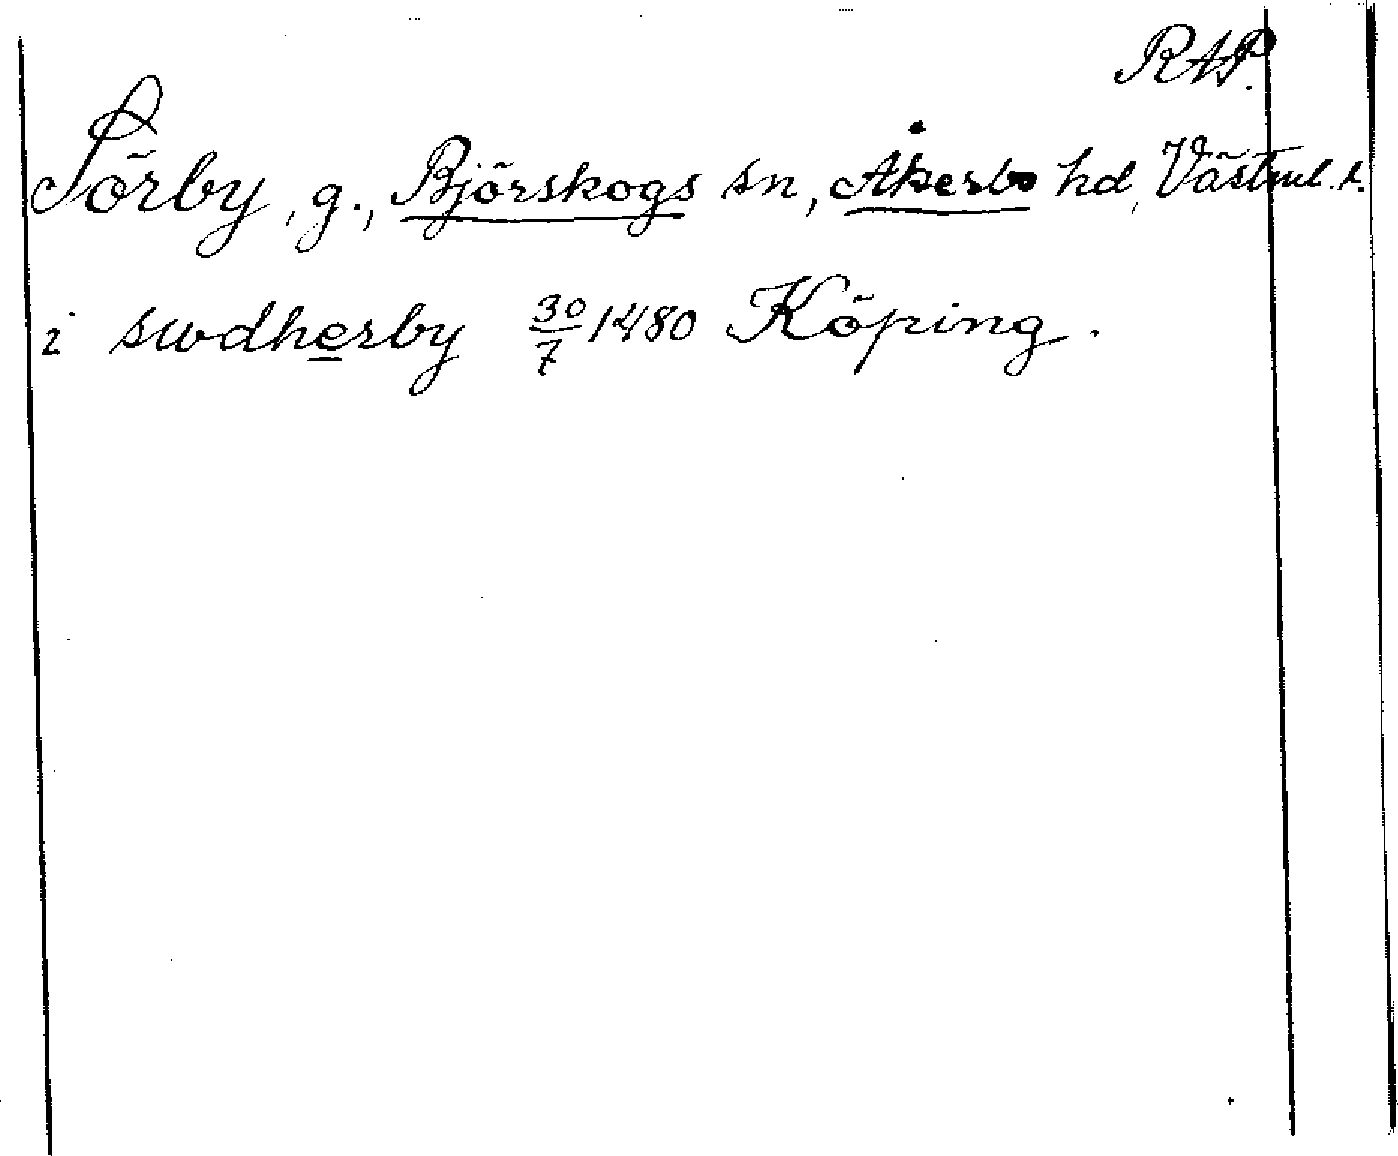 RAP.
Sörby, g., Björskogs sn, Åkerbo hd, Västml. l.
i swdherby 30/7 1480 Köping.